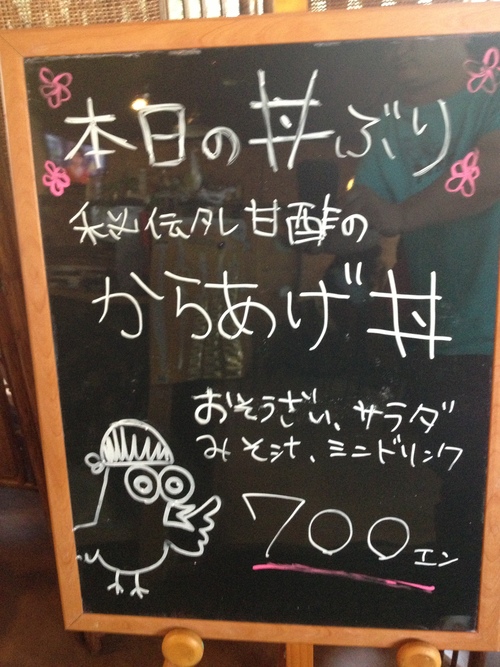 本日の丼ぶり
秘伝タレ甘酢の
からあげ丼
おそうざい、サラダ
みそ汁、ミニドリンク
700エン